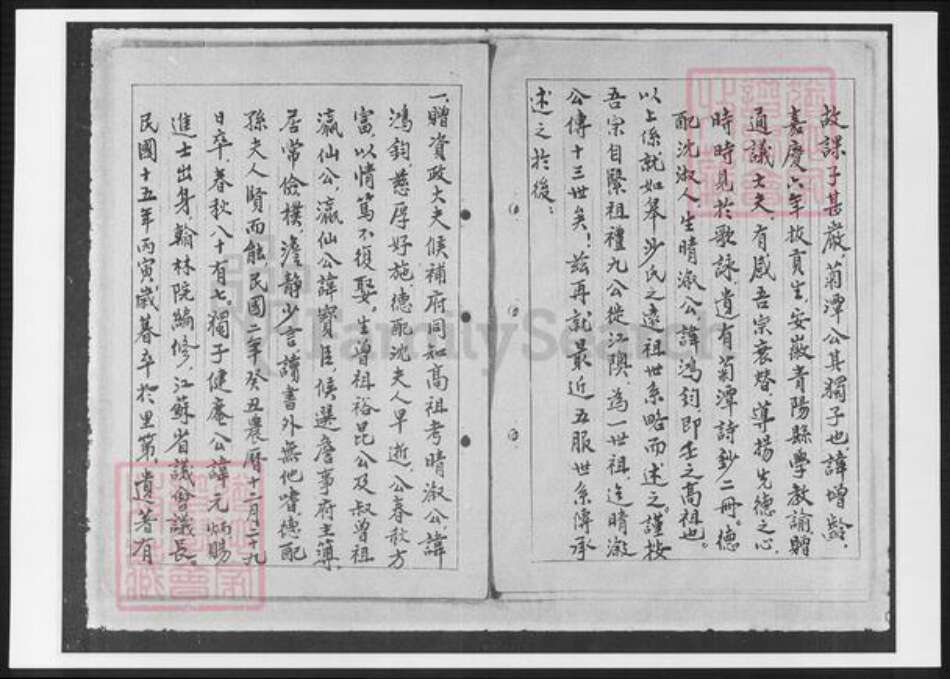 故課子甚嚴。菊潭公其獨子也諱增齡、
嘉慶六年拔貢生、安徽青陽縣學教諭贈
通議大夫、有感吾宗衰替、尊揚先德之心、
時時見於歌詠、遺有菊潭詩鈔二冊。德
配沈淑人生晴漵公諱鴻鈞即壬之高祖也。
以上係就如皋沙氏之遠祖世系略而述之。謹按
吾宗自緊祖禮九公徙江陰、為一世祖、迄晴漵
公傳十三世矣！茲再就最近五服世系傳承
述之於後：
一、贈資政大夫候補府同知高祖考晴漵公、諱
鴻鈞、慈厚好施、德配沈夫人早逝、公春秋方
富以情篤不復娶。生曾祖裕昆公及叔曾祖
瀛仙公、瀛仙公諱寶臣、候選詹事府主簿、
居常儉樸、澹靜少言讀書外無他嗜德配
孫夫人賢而能、民國二年癸丑農曆十二月二十九
日卒、春秋八十有七。獨子健庵公諱元炳賜
進士出身、翰林院編修、江蘇省議會議長。
民國十五年丙寅歲暮卒於里第、遺著有
FamilySearch